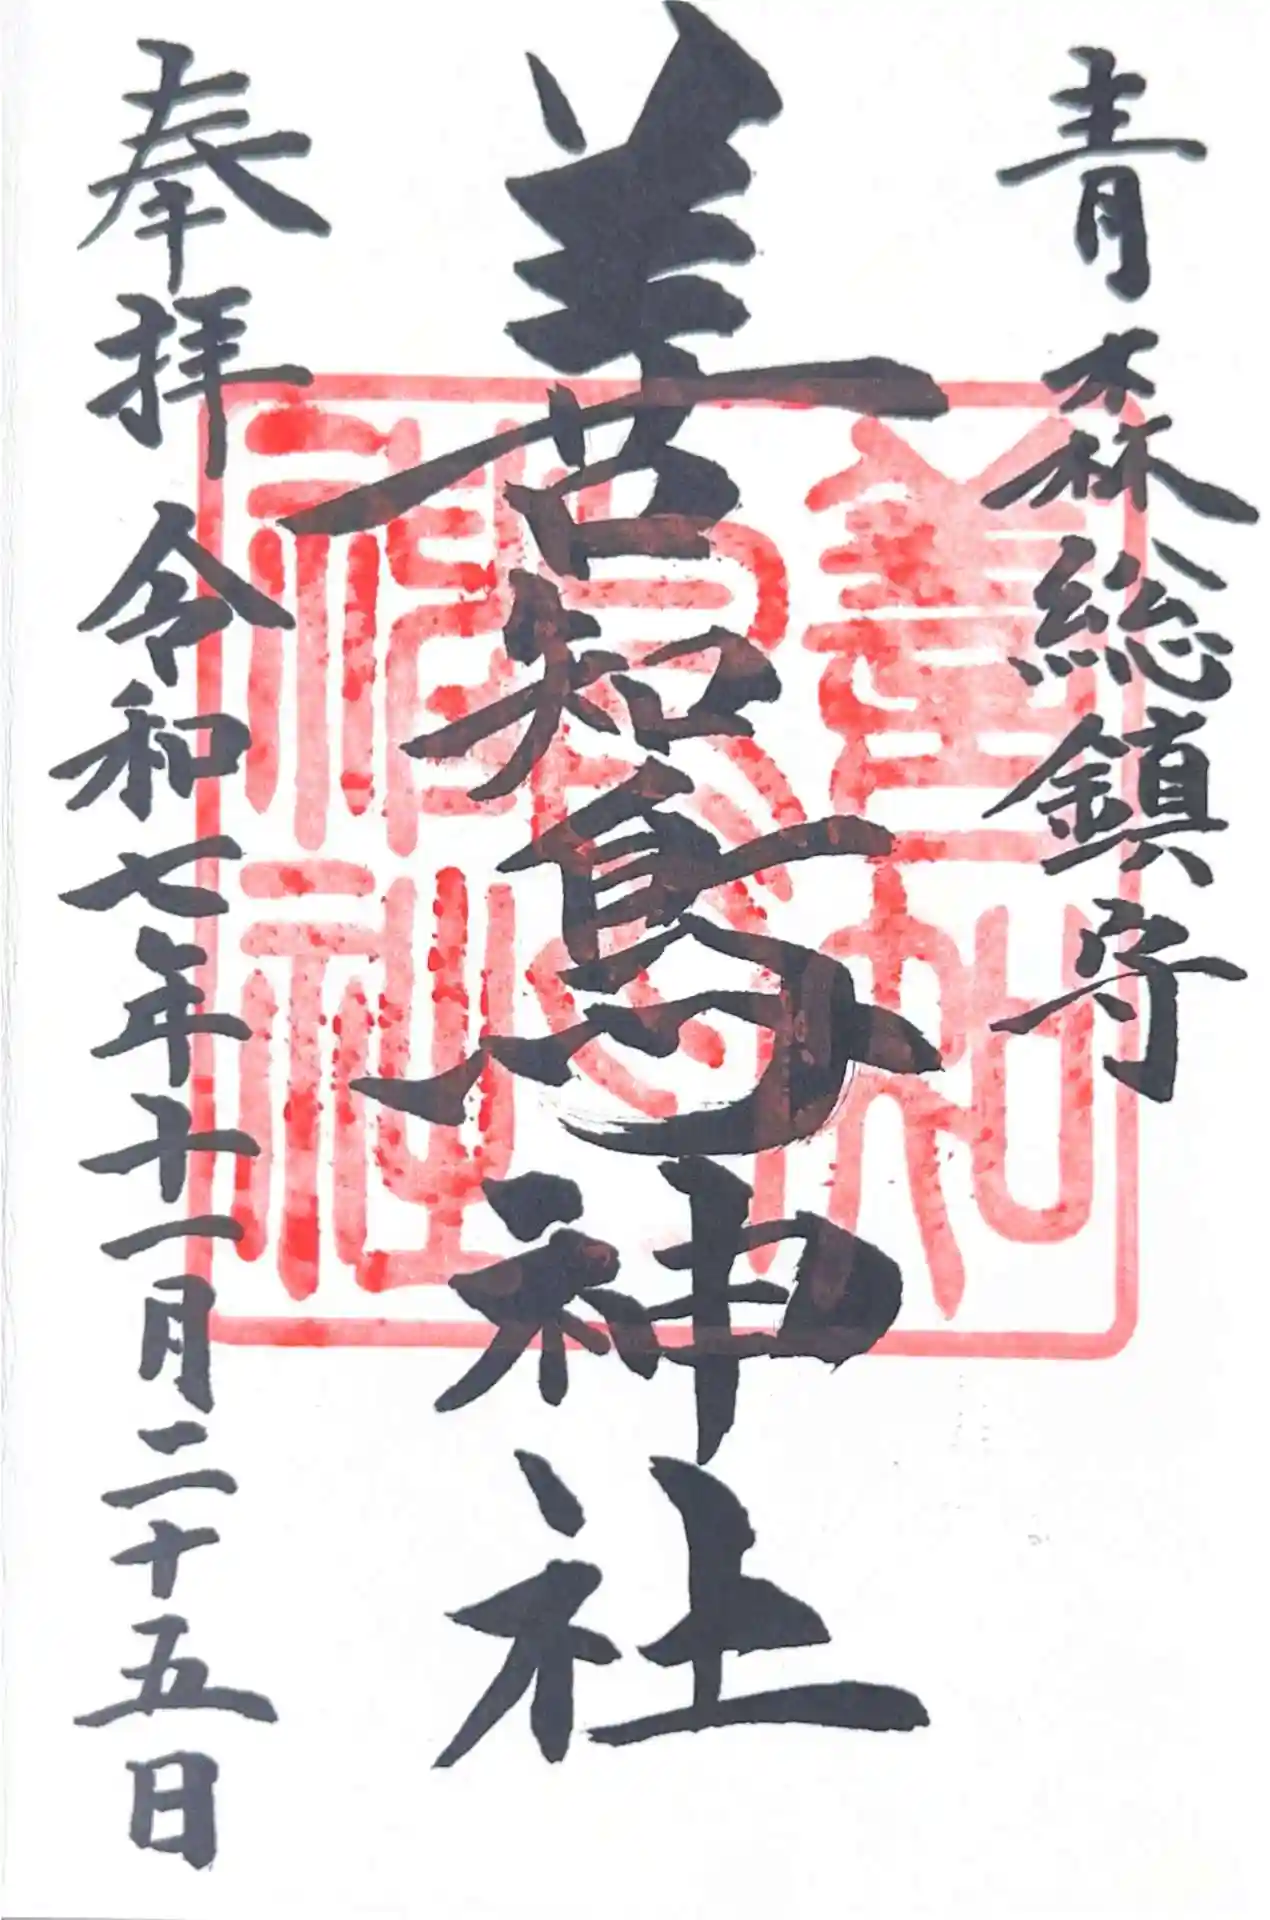 青森総鎮守
善知鳥神社
奉拝 令和七年十一月二十五日
善知
鳥神
社